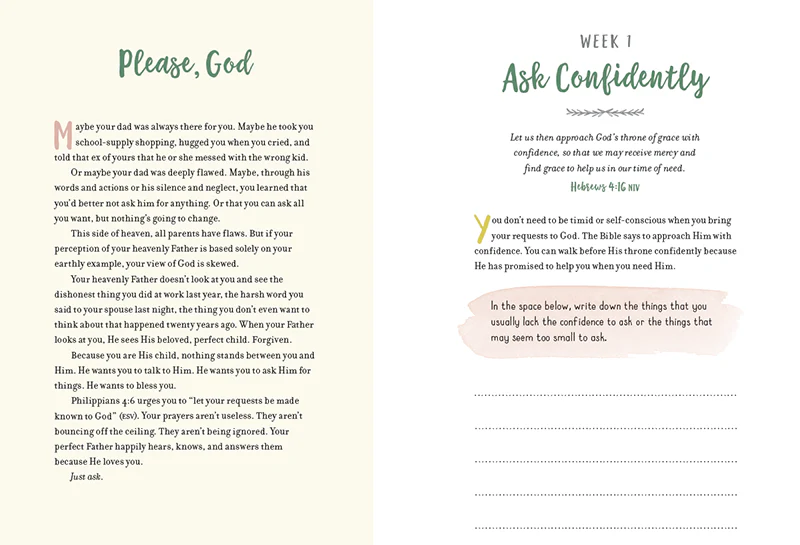 Please, God
Maybe your dad was always there for you. Maybe he took you
school-supply shopping, hugged you when you cried, and
told that ex of yours that he or she messed with the wrong kid.
Or maybe your dad was deeply flawed. Maybe, through his
words and actions or his silence and neglect, you learned that
you'd better not ask him for anything. Or that you can ask all
you want, but nothing's going to change.
This side of heaven, all parents have flaws. But if your
perception of your heavenly Father is based solely on your
earthly example, your view of God is skewed.
Your heavenly Father doesn't look at you and see the
dishonest thing you did at work last year, the harsh word you
said to your spouse last night, the thing you don't even want to
think about that happened twenty years ago. When your Father
looks at you, He sees His beloved, perfect child. Forgiven.
Because you are His child, nothing stands between you and
Him. He wants you to talk to Him. He wants you to ask Him for
things. He wants to bless you.
Philippians 4:6 urges you to “let your requests be made
known to God” (ESV). Your prayers aren't useless. They aren't
bouncing off the ceiling. They aren't being ignored. Your
perfect Father happily hears, knows, and answers them
because He loves you.
Just ask.
WEEK 1
Ask Confidently
Let us then approach God's throne of grace with
confidence, so that we may receive mercy and
find grace to help us in our time of need.
Hebrews 4:16 NIV
You don't need to be timid or self-conscious when you bring
your requests to God. The Bible says to approach Him with
confidence. You can walk before His throne confidently because
He has promised to help you when you need Him.
In the space below, write down the things that you
usually lack the confidence to ask or the things that
may seem too small to ask.